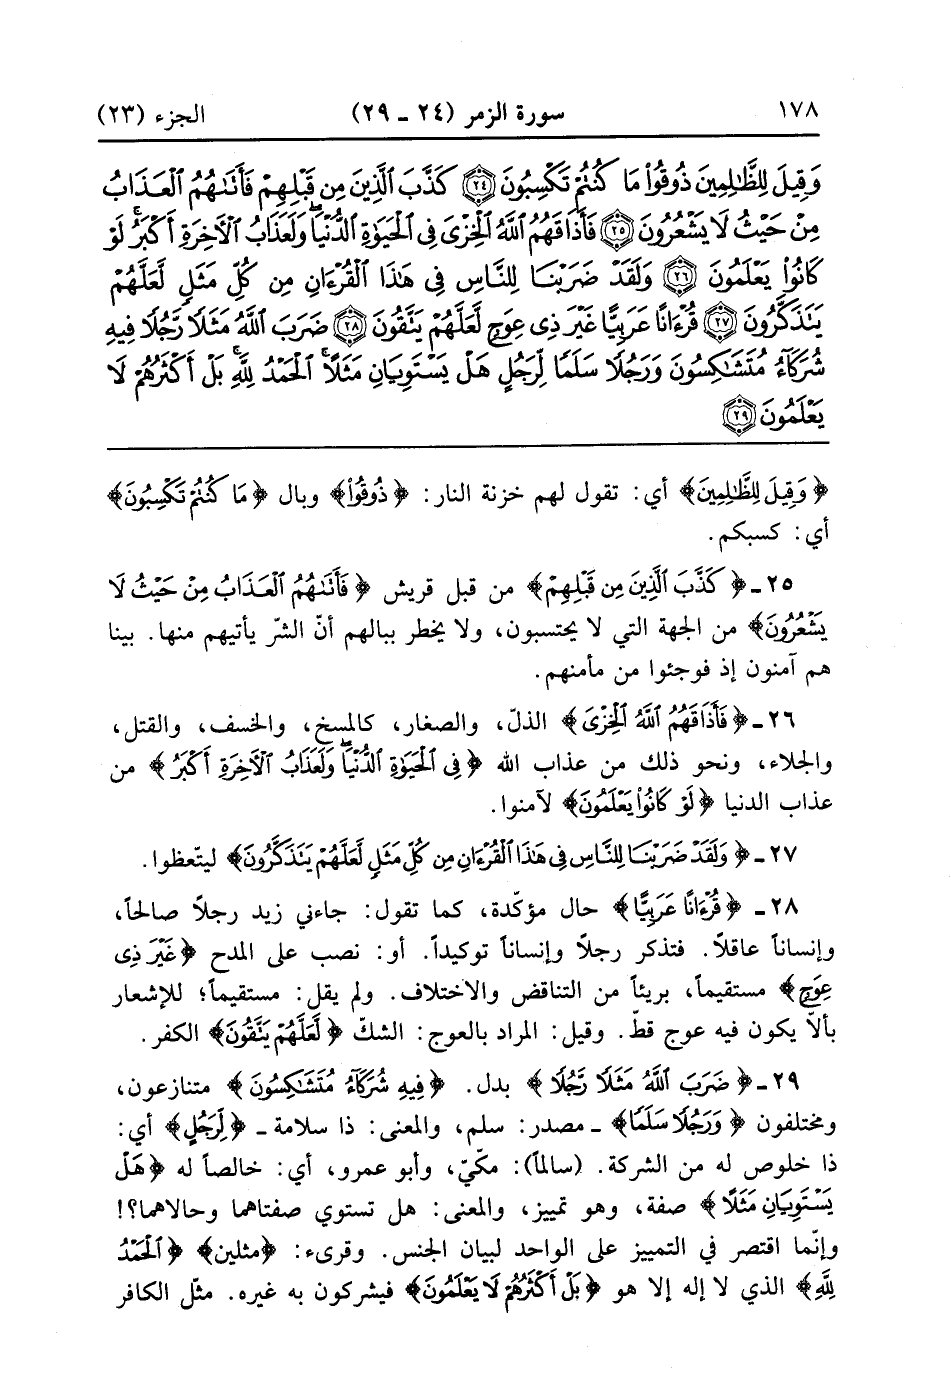 ١٧٨ سورة الزمر (٢٤ ـ ٢٩) الجزء (٢٣)
وَقِيلَ لِلظَّٰلِمِينَ ذُوقُواْ مَا كُنتُمۡ تَكۡسِبُونَ ٢٤ كَذَّبَ ٱلَّذِينَ مِن قَبۡلِهِمۡ فَأَتَىٰهُمُ ٱلۡعَذَابُ
مِنۡ حَيۡثُ لَا يَشۡعُرُونَ ٢٥ فَأَذَاقَهُمُ ٱللَّهُ ٱلۡخِزۡىَ فِى ٱلۡحَيَوٰةِ ٱلدُّنۡيَاۖ وَلَعَذَابُ ٱلۡأٓخِرَةِ أَكۡبَرُۚ لَوۡ
كَانُواْ يَعۡلَمُونَ ٢٦ وَلَقَدۡ ضَرَبۡنَا لِلنَّاسِ فِى هَٰذَا ٱلۡقُرۡءَانِ مِن كُلِّ مَثَلٍ لَّعَلَّهُمۡ
يَتَذَكَّرُونَ ٢٧ قُرۡءَانًا عَرَبِيًّا غَيۡرَ ذِى عِوَجٍ لَّعَلَّهُمۡ يَتَّقُونَ ٢٨ ضَرَبَ ٱللَّهُ مَثَلًا رَّجُلًا فِيهِ
شُرَكَآءُ مُتَشَٰكِسُونَ وَرَجُلًا سَلَمًا لِّرَجُلٍ هَلۡ يَسۡتَوِيَانِ مَثَلًاۚ ٱلۡحَمۡدُ لِلَّهِۚ بَلۡ أَكۡثَرُهُمۡ لَا
يَعۡلَمُونَ ٢٩
﴿وَقِيلَ لِلظَّٰلِمِينَ﴾ أي: تقول لهم خزنة النار: ﴿ذُوقُواْ﴾ وبال ﴿مَا كُنتُمۡ تَكۡسِبُونَ﴾
أي: كسبكم.
٢٥ ـ ﴿كَذَّبَ ٱلَّذِينَ مِن قَبۡلِهِمۡ﴾ من قبل قريش ﴿فَأَتَىٰهُمُ ٱلۡعَذَابُ مِنۡ حَيۡثُ لَا
يَشۡعُرُونَ﴾ من الجهة التي لا يحتسبون، ولا يخطر ببالهم أنّ الشرّ يأتيهم منها. بينا
هم آمنون إذ فوجئوا من مأمنهم.
٢٦ ـ ﴿فَأَذَاقَهُمُ ٱللَّهُ ٱلۡخِزۡىَ﴾ الذلّ، والصغار، كالمسخ، والخسف، والقتل،
والجلاء، ونحو ذلك من عذاب الله ﴿فِى ٱلۡحَيَوٰةِ ٱلدُّنۡيَاۖ وَلَعَذَابُ ٱلۡأٓخِرَةِ أَكۡبَرُ﴾ من
عذاب الدنيا ﴿لَوۡ كَانُواْ يَعۡلَمُونَ﴾ لآمنوا.
٢٧ ـ ﴿وَلَقَدۡ ضَرَبۡنَا لِلنَّاسِ فِى هَٰذَا ٱلۡقُرۡءَانِ مِن كُلِّ مَثَلٍ لَّعَلَّهُمۡ يَتَذَكَّرُونَ﴾ ليتّعظوا.
٢٨ ـ ﴿قُرۡءَانًا عَرَبِيًّا﴾ حال مؤكّدة، كما تقول: جاءني زيد رجلاً صالحاً،
وإنساناً عاقلاً. فتذكر رجلاً وإنساناً توكيداً. أو: نصب على المدح ﴿غَيۡرَ ذِى
عِوَجٍ﴾ مستقيماً، بريئاً من التناقض والاختلاف. ولم يقل: مستقيماً؛ للإشعار
بألاّ يكون فيه عوج قطّ. وقيل: المراد بالعوج: الشكّ ﴿لَّعَلَّهُمۡ يَتَّقُونَ﴾ الكفر.
٢٩ ـ ﴿ضَرَبَ ٱللَّهُ مَثَلًا رَّجُلًا﴾ بدل. ﴿فِيهِ شُرَكَآءُ مُتَشَٰكِسُونَ﴾ متنازعون،
ومختلفون ﴿وَرَجُلًا سَلَمًا﴾ ـ مصدر: سلم، والمعنى: ذا سلامة ـ ﴿لِّرَجُلٍ﴾ أي:
ذا خلوص له من الشركة. (سالماً): مكّيّ، وأبو عمرو، أي: خالصاً له ﴿هَلۡ
يَسۡتَوِيَانِ مَثَلًا﴾ صفة، وهو تمييز، والمعنى: هل تستوي صفتاهما وحالاهما؟!
وإنّما اقتصر في التمييز على الواحد لبيان الجنس. وقرىء: ﴿مثلين﴾ ﴿ٱلۡحَمۡدُ
لِلَّهِ﴾ الذي لا إله إلا هو ﴿بَلۡ أَكۡثَرُهُمۡ لَا يَعۡلَمُونَ﴾ فيشركون به غيره. مثّل الكافر